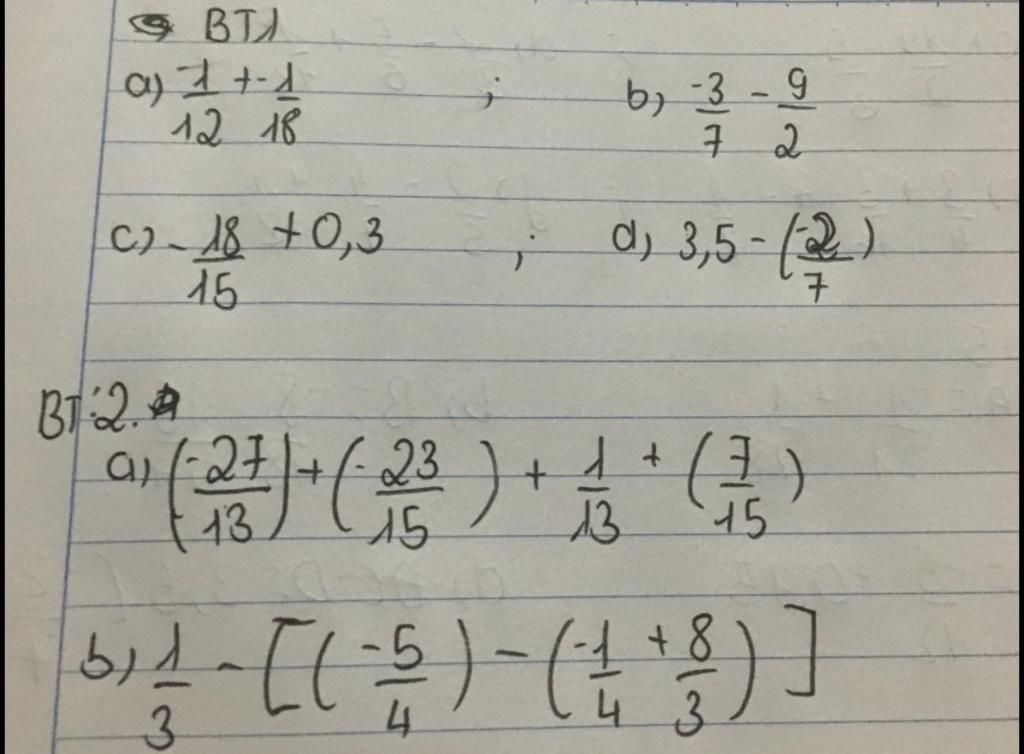 BT1
a) -1/12 + -1/18 ; b) -3/7 - 9/2
c) - 18/15 + 0,3 ; d) 3,5 - (-2/7)
BT:2.
a) (-27/13) + (-23/15) + 1/13 + (7/15)
b) 1/3 - [(-5/4) - (-1/4 + 8/3)]